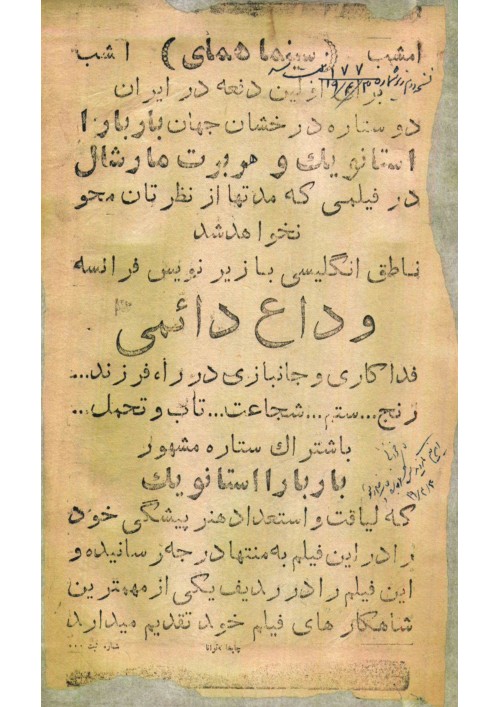 امشب (سینما همای) امشب
برای اولین دفعه در ایران
دو ستاره درخشان جهان باربارا
استانویك و هربرت مارشال
در فیلمی که مدتها از نظرتان محو
نخواهد شد
ناطق انگلیسی با زیر نویس فرانسه
وداع دائمی
فداکاری و جانبازی در راه فرزند...
رنج...ستم...شجاعت...تاب و تحمل...
باشتراك ستاره مشهور
باربارا استانویك
که لیاقت و استعداد هنر پیشگی خود
را در این فیلم به منتها درجه رسانیده و
این فیلم را در ردیف یکی از مهمترین
شاهکار های فیلم خود تقدیم میدارد